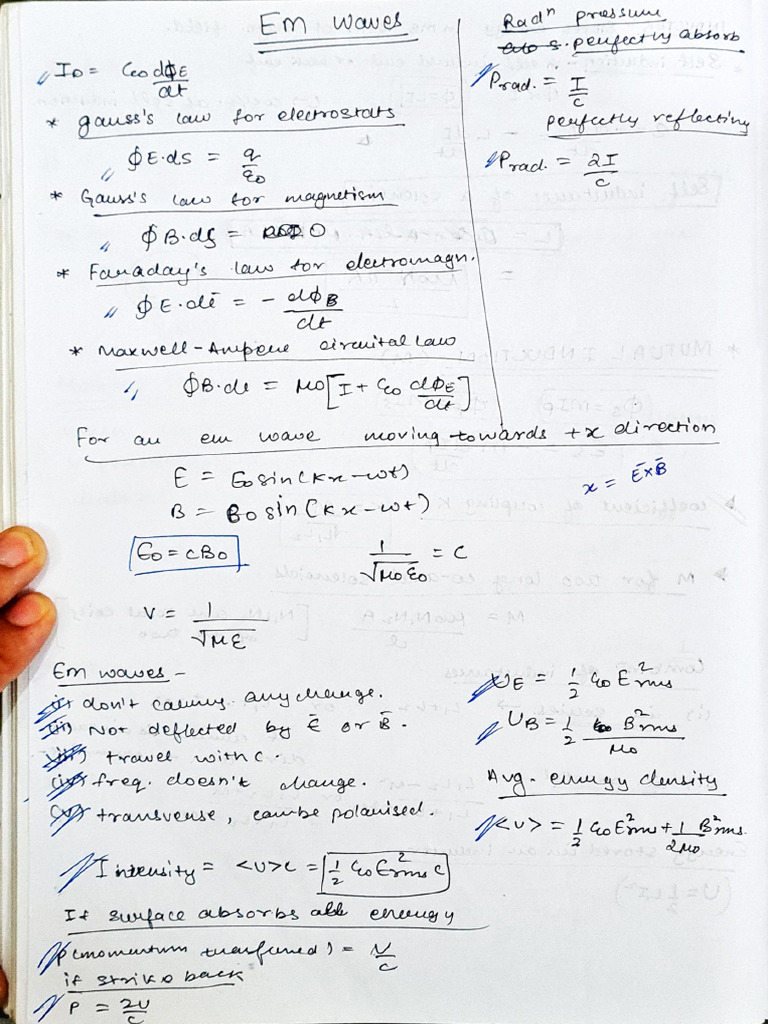 EM waves
I_D = ε₀ dϕ_E/dt
* gauss's law for electrostats
∮E.ds = q/ε₀
* Gauss's law for magnetism
∮B.ds = 0
* Faraday's law for electromagn.
∮E.dl = - dϕ_B/dt
* Maxwell-Ampere circuital law
∮B.dl = μ₀[I + ε₀ dϕ_E/dt]
Radⁿ pressure
s. perfectly absorb
Prad. = I/c
perfectly reflecting
Prad. = 2I/c
For an em wave moving towards +x direction
E = E₀ sin(kx-ωt)
B = B₀ sin(kx-ωt)
x = E̅×B̅
E₀ = cB₀
1/√μ₀ε₀ = c
V = 1/√με
Em waves -
(i) don't carry any change.
(ii) Not deflected by E̅ or B̅.
(iii) travel with c.
(iv) freq. doesn't change.
(v) transverse, can be polarised.
U_E = 1/2 ε₀ E²rms
U_B = 1/2 B²rms/μ₀
Avg. energy density
<U> = 1/2 ε₀ E²rms + 1/2μ₀ B²rms.
Intensity = <U>c = 1/2 ε₀ E²rms c
If surface absorbs all energy
p(momentum transferred) = U/c
if strike back
P = 2U/c